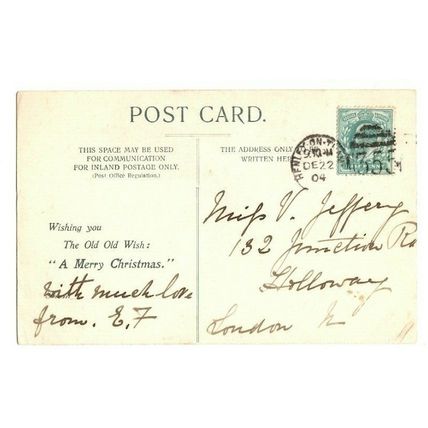 POST CARD.
THIS SPACE MAY BE USED
FOR COMMUNICATION
FOR INLAND POSTAGE ONLY.
(Post Office Regulation.)
THE ADDRESS ONLY
WRITTEN HERE
HENLEY-ON-T
DE 22
04
Wishing you
The Old Old Wish:
"A Merry Christmas."
With much love
from. E. F
Miss V. Jeffery
132 Junction Ro
Holloway
London N